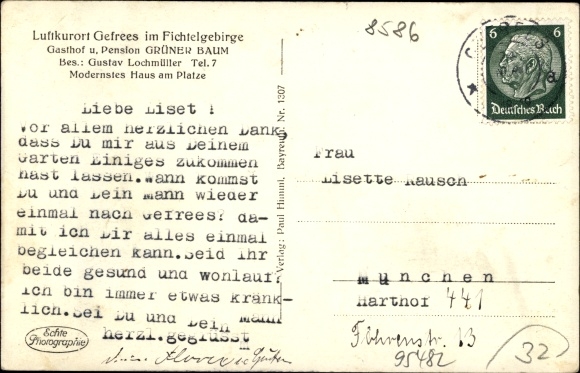 Luftkurort Gefrees im Fichtelgebirge
Gasthof u. Pension GRÜNER BAUM
Bes.: Gustav Lochmüller Tel. 7
Modernstes Haus am Platze
8586
6 6
Deutsches Reich
Liebe Liset !
Vor allem herzlichen Dank,
dass Du mir aus Deinem
Garten Einiges zukommen
hast lassen.Wann kommst
Du und Dein Mann wieder
einmal nach Gefrees? da-
mit ich Dir alles einmal
begleichen kann.Seid Ihr
beide gesund und wohlauf?
Ich bin immer etwas kränk-
lich.Sei Du und Dein Mann
herzl.gegrüsst
Echte
Photographie
Verlag: Paul Humml, Bayreuth Nr. 1307
Frau
Lisette Rausch
München
Harthof 441
Föhrenstr. 13
95482
32